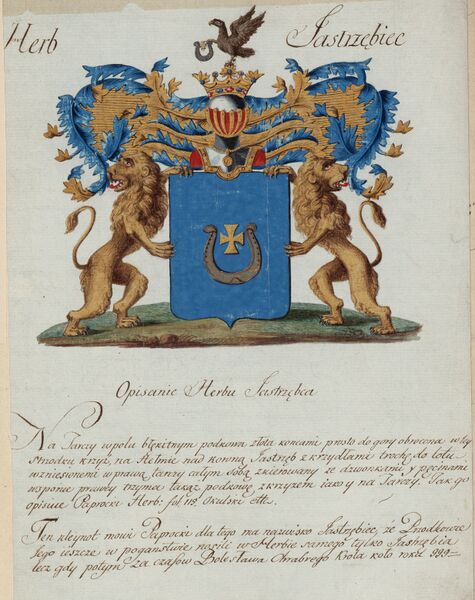 Herb Jastrzębiec
Opisanie Herbu Jastrzębca
Na Tarczy w polu błękitnym podkowa złota koncami prosto do gory obrocona w iey
srodku krzyż, na Hełmie nad koroną Jastrząb z krzydłami trochę do lotu
wzniesionemi w prawą tarczy całym sobą zkierowany ze dzwonkami y pęcinami
w szponie prawey trzyma takąż podkowę z krzyżem iaka y na Tarczy. Tak go
opisuie Paprocki Herb: fol: 112 Okulski ettc.
Ten kleynot mowi Paprocki dla tego ma nazwisko Jastrzębiec, że Przodkowie
Jego ieszcze w pogaństwie nosili w Herbie samego tylko Jastrzębia
lecz gdy potym za czasow Bolesława Chrabrego Krola koło roku 999